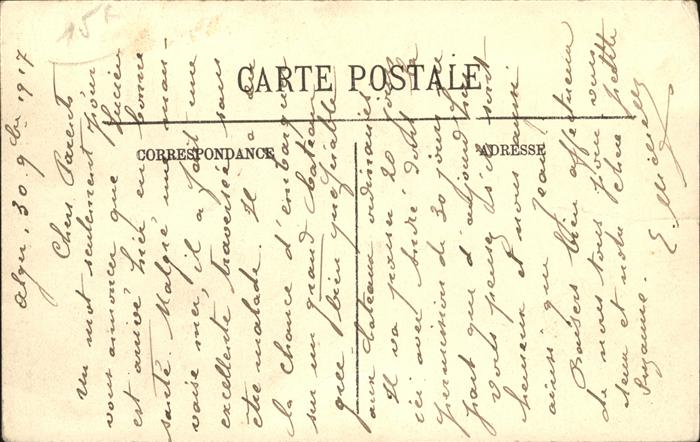 15 F
CARTE POSTALE
CORRESPONDANCE
ADRESSE
Alger, 30. 9bre 1917
Chers Parents
Un mot seulement pour
vous annoncer que Lucien
est arrivé hier en bonne
santé. Malgré une mau-
vaise mer, il a fait une
excellente traversée sans
être malade. Il a eu
la chance d'embarquer
sur un grand bateau
bien que faible
aux bateaux ordinaires
Il va passer 20 jours
ici avec André dont la
permission de 30 jours ne
part que d'aujourd'hui
Vous pensez s'ils sont
heureux et nous aussi
ainsi que
Baisers bien affectueux
de nous tous pour vous
deux et notre chère petite
Suzanne.
E.